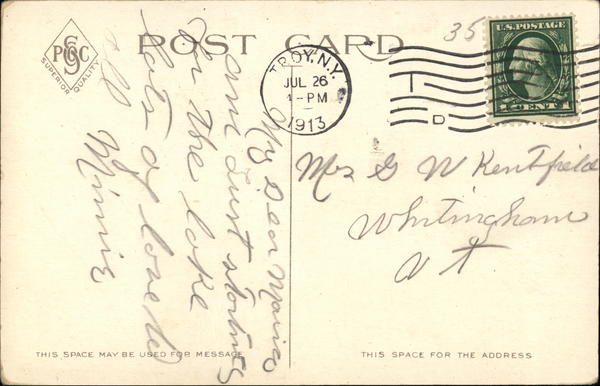 PSCC
SUPERIOR QUALITY
POST CARD
35
U.S. POSTAGE
1 CENT 1
TROY, N.Y.
JUL 26
1-PM
1913
D
My Dear Marie
am Just starting
for the lake
lots of love to
all
Minnie
Mrs G W Kentfield
Whitingham
V t
THIS SPACE MAY BE USED FOR MESSAGE
THIS SPACE FOR THE ADDRESS